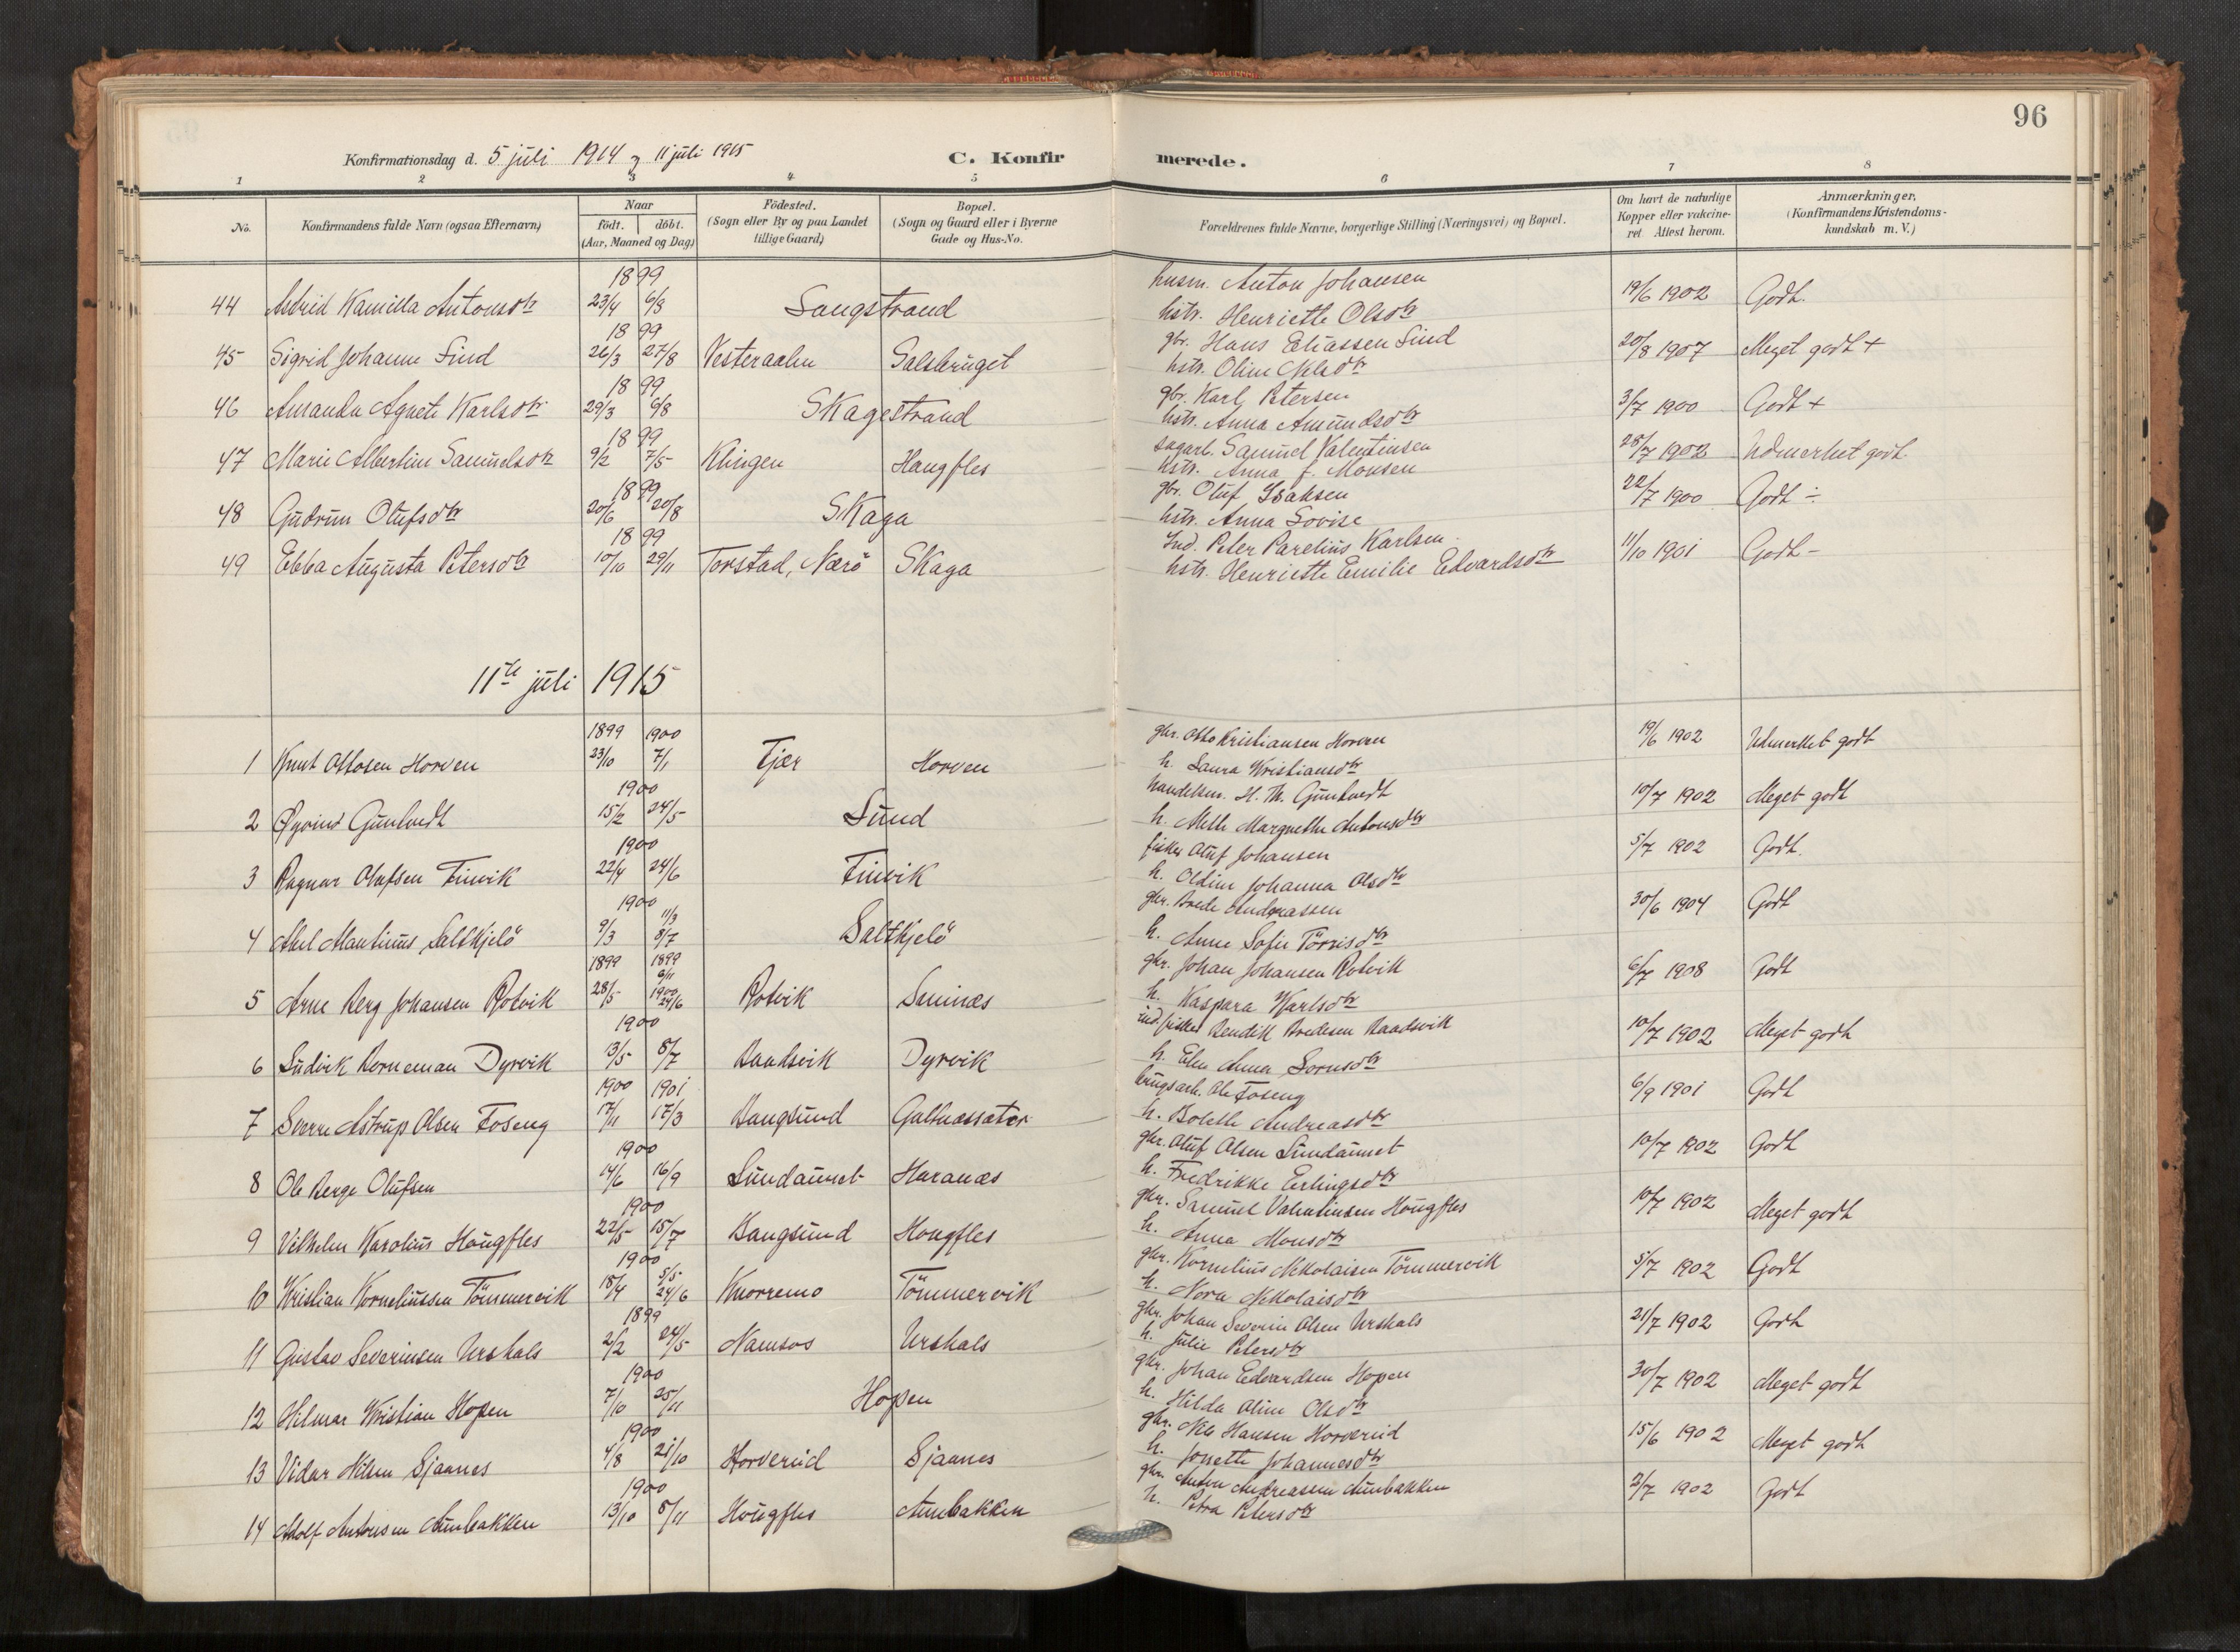 96
Konfirmationsdag d. 5 juli 1914 og 11 juli 1915
C. Konfirmerede.
1 2 3 4 5 6 7 8
No.
Konfirmandens fulde Navn (ogsaa Efternavn)
Naar
født. döbt.
(Aar, Maaned og Dag)
Födested.
(Sogn eller By og paa Landet
tillige Gaard)
Bopæl.
(Sogn og Gaard eller i Byerne
Gade og Hus-No.
Forældrenes fulde Navne, borgerlige Stilling (Næringsvei) og Bopæl.
Om havt de naturlige
Kopper eller vakcine-
ret Attest herom.
Anmærkninger,
(Konfirmandens Kristendoms-
kundskab m. V.)
1899 husm. Anton Johansen
44 Astrid Kamilla Antonsdtr 23/4 6/8 Sangstrand hstr. Henriette Olsdtr 19/6 1902 Godt.
1899 gbr. Hans Eliassen Sind
45 Sigrid Johanne Sind 26/3 27/8 Vesteraalen Salsbruget hstr. Oline Nilsdtr 20/8 1907 Meget godt +
1899 gbr. Karl Petersen
46 Amanda Agnete Karlsdtr 29/3 6/8 Skagestrand hstr. Anna Amundsdtr 3/7 1900 Godt +
1899 sagarb. Samuel Valentinsen
47 Marie Albertine Samuelsdtr 9/2 7/5 Klingen Haugfles hstr. Anna J. Monsen 28/7 1902 Udmerket godt
1899 gbr. Oluf Isaksen
48 Gudrun Olufsdtr 20/6 20/8 Skaga hstr. Anna Lovise 22/7 1900 Godt ÷
1899 Ind. Peter Parelius Karlsen
49 Ebba Augusta Petersdtr 10/10 29/11 Torstad, Nærö Skaga hstr. Henriette Emilie Edvardsdtr 11/10 1901 Godt -
11te juli 1915
1899 1900 gbr. Otto Kristiansen Horven
1 Knut Ottosen Horven 23/10 7/1 Fjær Horven h. Laura Kristiansdtr 19/6 1902 Udmerket godt
1900 handelsm. H. Th. Gunhvedt
2 Øyvind Gunhvedt 15/2 24/5 Lund h. Mette Margrethe Antonsdtr 10/7 1902 Meget godt
1900 fisker Oluf Johansen
3 Ragnar Olufsen Finvik 22/4 24/6 Finvik h. Oldine Johanna Olsdtr 5/7 1902 Godt.
1900 11/3 gbr. Brede Andreassen
4 Axel Martinus Saltkjelö 9/3 8/7 Saltkjelö h. Anne Sofie Törrisdtr 30/6 1904 Godt
1899 1899 6/11 gbr. Johan Johansen Rotvik
5 Arne Berg Johansen Rotvik 28/5 1900 24/6 Rotvik Seminæs h. Kaspara Karlsdtr 6/7 1908 Godt
1900 ind. fisker Bendik Bredesen Baadsvik
6 Ludvik Borneman Dyrvik 13/5 8/7 Baadsvik Dyrvik h. Elen Anna Sornsdtr 10/7 1902 Meget godt
1900 1901 brugsarb. Ole Foseng
7 Sverre Astrup Olsen Foseng 17/11 17/3 Bangsund Galtnæssæter h. Bolette Andreasdtr 6/9 1901 Godt
1900 gbr. Oluf Olsen Sundaunet
8 Ole Berge Olufsen 14/6 16/9 Sundaunet Haranæs h. Fredrikke Erlingsdtr 10/7 1902 Godt
1900 gbr. Samuel Valentinsen Hougfles
9 Vilhelm Karolius Hougfles 22/5 15/7 Bangsund Hougfles h. Anna Monsdtr 10/7 1902 Meget godt
1900 5/5 gbr. Kornelius Nikolaisen Tömmervik
10 Kristian Korneliussen Tömmervik 18/4 24/6 Knorremo Tömmervik h. Nora Nikolaisdtr 5/7 1902 Godt
1899 gbr. Johan Severin Olsen Urskals
11 Gustav Severinsen Urskals 2/2 24/5 Namsos Urskals h. Julie Petersdtr 21/7 1902 Godt
1900 gbr. Johan Edvardsen Hopen
12 Hilmar Kristian Hopen 7/10 25/11 Hopen h. Hilda Oline Olsdtr 30/7 1902 Meget godt
1900 gbr. Nils Hansen Horverud
13 Vidar Nilsen Sjaanes 4/8 28/10 Horverud Sjaanes h. Jonette Johannesdtr 15/6 1902 Meget godt
1900 gbr. Anton Andreassen Aunbakken
14 Adolf Antonsen Aunbakken 13/10 8/11 Hougfles Aunbakken h. Petra Petersdtr 2/7 1902 Godt